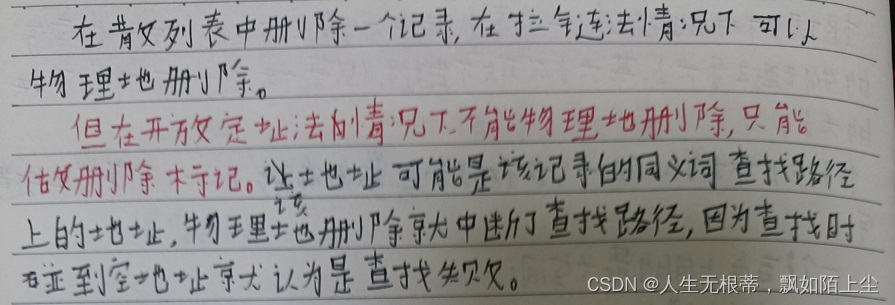 在散列表中删除一个记录,在拉链法情况下可以
物理地删除。
但在开放定址法的情况下不能物理地删除,只能
做删除标记。该地址可能是该记录的同义词查找路径
上的地址,物理地删除就中断了查找路径,因为查找时
碰到空地址就认为是查找失败。
CSDN @人生无根蒂,飘如陌上尘